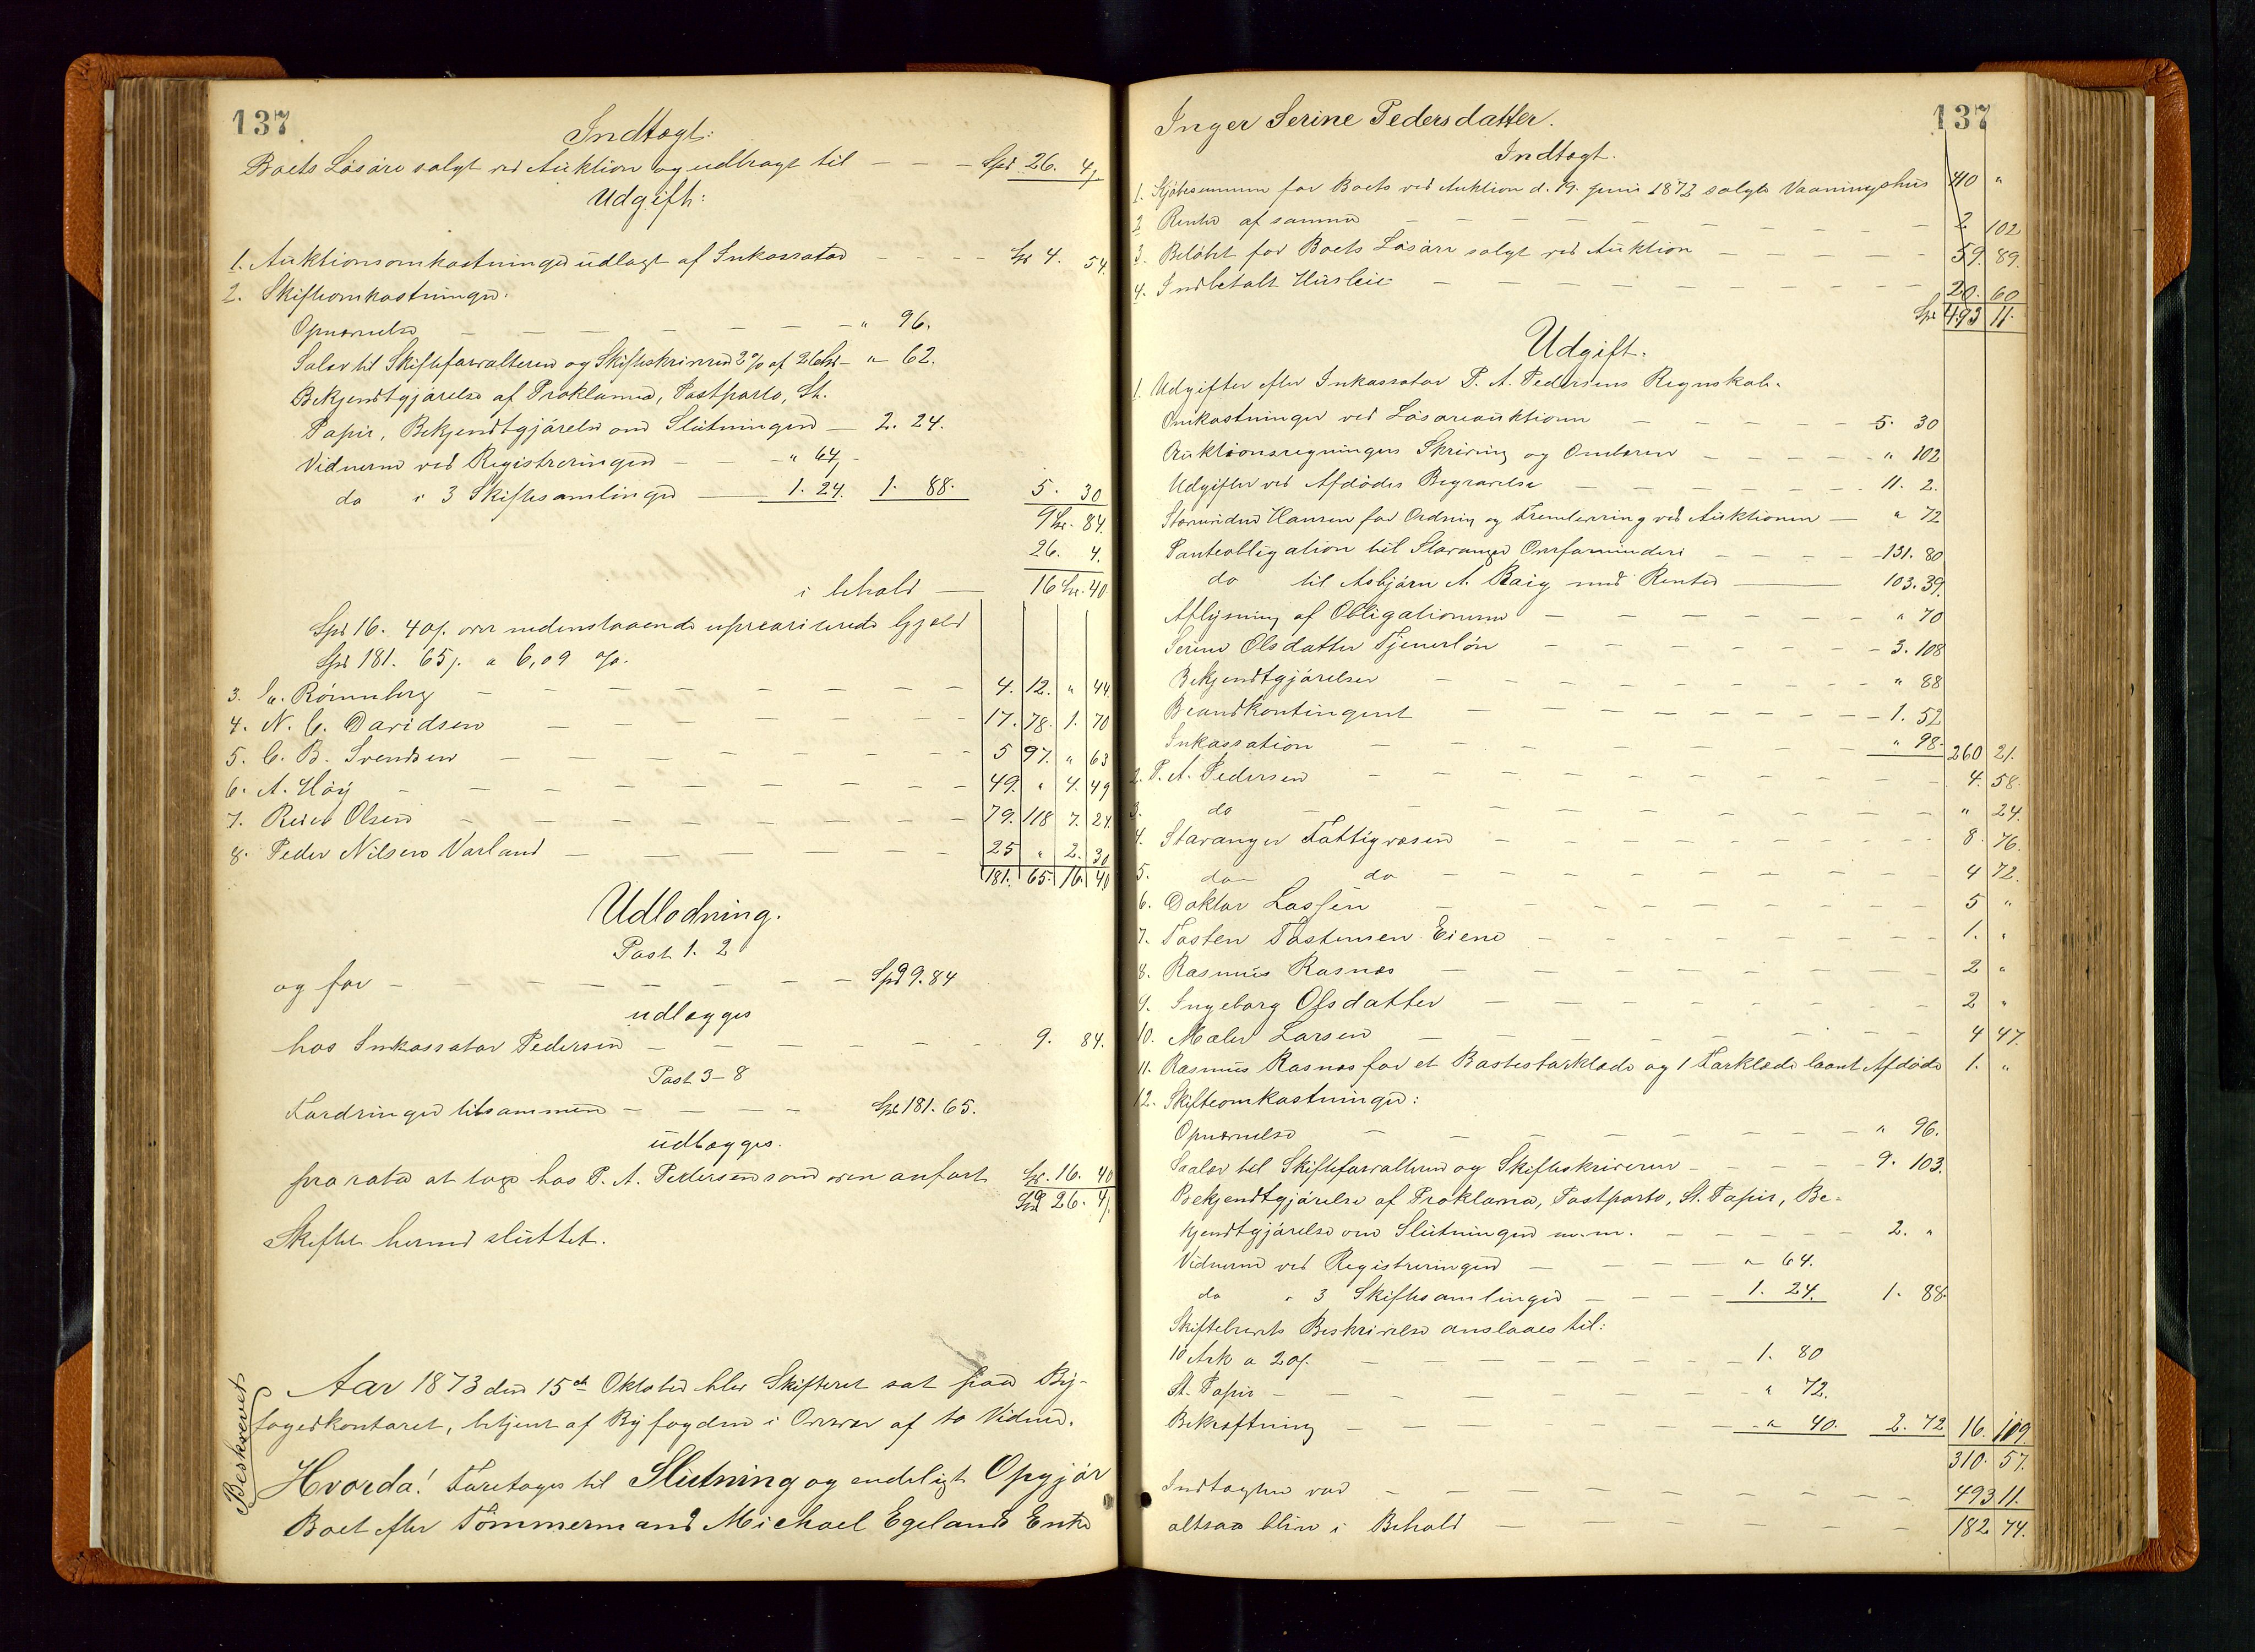 137
Indtægt:
Boets Løsøre solgt ved Auktion og udbragt til — — — Spd 26. 4/
Udgift:
1. Auktionsomkostninger udlagt af Inkassator — — — — Spd 4. 54.
2. Skifteomkostninger:
Opnævnelse — — — — — — — " 96.
Salær til Skifteforvalteren og Skifteskriveren 2 % af 26 Spd — " 62.
Bekjendtgjørelse af Proklama, Postporto, St.
Papir, Bekjendtgjørelse om Slutningen — 2. 24.
Vidnerne ved Registreringen — — " 64 –
do " 3 Skiftesamlinger — 1. 24. 1. 88. 5. 30
9 Spd. 84.
26. 4.
i behold — 16 Spd. 40
Spd 16. 40 /. over nedenstaaende uprioriterede Gjæld
Spd 181. 65 /. a 6,09 %.
3. C. Rønneberg — — — — — — — — 4. 12. " 44.
4. N. C. Davidsen — — — — — — — 17. 78. 1. 70
5. C. B. Svendsen — — — — — — — 5 97. " 63
6. A. Høy — — — — — — — — 49. " 4. 49
7. Reier Olsen — — — — — — — — 79. 118 7. 24.
8. Peder Nilsen Varland — — — — — — 25 " 2. 30
181. 65. 16. 40
Udlodning.
Post 1. 2
og for — — — — — — — — Spd 9. 84
udlægges
hos Inkassator Pedersen — — — — — — 9. 84.
Post 3–8
Fordringer tilsammen — — — — Spd 181. 65.
udlægges.
pro rata at tage hos P. A. Pedersen som oven anført Spd. 16. 40
Spd 26. 4/.
Skiftet hermed sluttet.
Beskrevet
Aar 1873 den 15de Oktober blev Skifteret sat paa By-
fogedkontoret, betjent af Byfogden i Overvær af to Vidner.
Hvorda! Foretages til Slutning og endeligt Opgjør
Boet efter Tømmermand Michael Egelands Enke
137
Inger Serine Pedersdatter.
Indtægt.
1. Kjøbesummen for Boets ved Auktion d. 19. juni 1872 solgte Vaaningshus 410 "
2. Renter af samme — — — — — — — 2 102
3. Beløbet for Boets Løsøre solgt ved Auktion — — — — — 59. 89.
4. Indbetalt Husleie — — — — — — — — 20. 60
Spd 493 11.
Udgift.
1. Udgifter efter Inkassator P. A. Pedersens Regnskab:
Omkostninger ved Løsøreauktionen — — — — — 5. 30
Auktionsregningens Skrivning og Ombæren — — — — " 102
Udgifter ved Afdødes Begravelse — — — — — — 11. 2.
Hansen for Ordning og Fremlevering ved Auktionen — " 72
Panteobligation til Stavanger Overformynderi — — — — 131. 80
do til Asbjørn A. Raig med Renter — — 103. 39.
Aflysning af Obligationerne — — — — — — — " 70
Serine Olsdatter Tjenerløn — — — — — — — 3. 108
Bekjendtgjørelser — — — — — — — — " 88
Brandkontingent — — — — — — — — 1. 52
Inkassation — — — — — — — — " 98. 260 21.
2. P. A. Pedersen — — — — — — — — — 4. 58.
3. do — — — — — — — — — " 24.
4. Stavanger Fattigvæsen — — — — — — — — 8. 76.
5. do do — — — — — — — 4 72.
6. Doktor Lassen — — — — — — — — 5 "
7. Tosten Tostensen Eiene — — — — — — — 1. "
8. Rasmus Rasnæs — — — — — — 2 "
9. Ingeborg Olsdatter — — — — — — — 2 "
10. Maler Larsen — — — — — — — 4 47.
11. Rasmus Rasnæs for et Bastestørklæde og 1 Forklæde laant Afdøde 1. "
12. Skifteomkostninger:
Opnævnelse — — — — — — — — " 96.
Saalær til Skifteforvalteren og Skifteskriveren — — — — — 9. 103.
Bekjendtgjørelse af Proklama, Postporto, St. Papir, Be-
kjendtgjørelse om Slutningen m.m. — — — — — 2. "
Vidnerne ved Registreringen — — — — " 64.
do " 3 Skiftesamlinger — — — — 1. 24. 1. 88.
Skiftebrevets Beskrivelse anslaaes til:
10 Ark a 20 /. — — — — — — — 1. 80
St. Papir — — — — — — — — " 72.
Bekræftning — — — — — — — " 40. 2. 72 16. 109.
310. 57.
Indtægten var — — — — — — — — 493 11.
altsaa bliver i Behold — — — — — — 182 74.